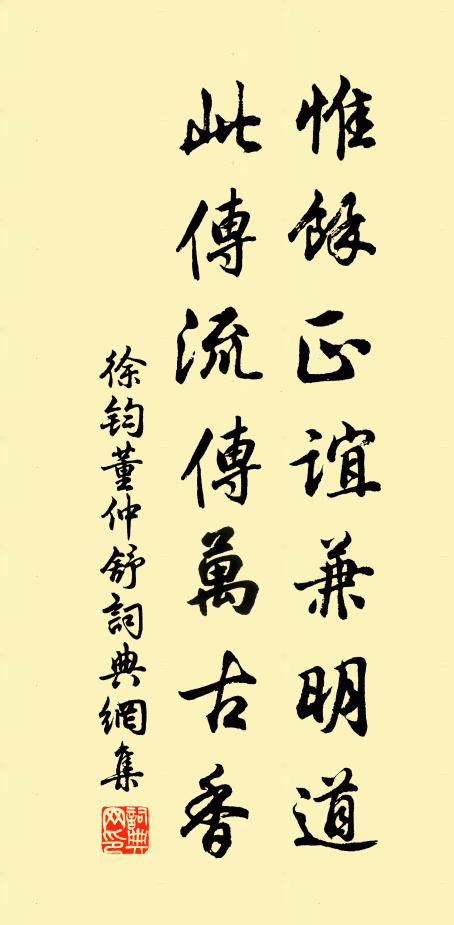 惟餘正誼兼明道
此傳流傳萬古香
徐鈞董仲舒詞典網集
詞典网印